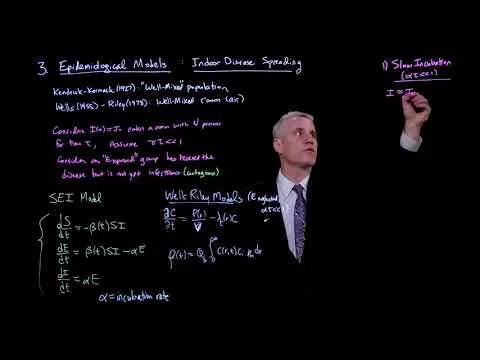 3. Epidemiological Models : Indoor Disease Spreading
Kendrick-Kormack (1927): "Well-Mixed" population
Wells (1955) - Riley (1978): Well-Mixed room (air)
Consider I(0)=I₀ enter a room with N persons
for time τ, assume γτ<<1
Consider an "Exposed" group has received the
disease but is not yet infectious (contagious)
SEI Model
dS/dt = -β(t)SI
dE/dt = β(t)SI - αE
dI/dt = αE
α = incubation rate
Wells Riley Models (E neglected)
ατ<<1
∂C/∂t = P(r)/V - λ(r)C
β(t) = Q_b ∫₀^∞ C(r,t) c_i p_m dr
1) Slow Incubation
(ατ<<1)
I ≈ I₀